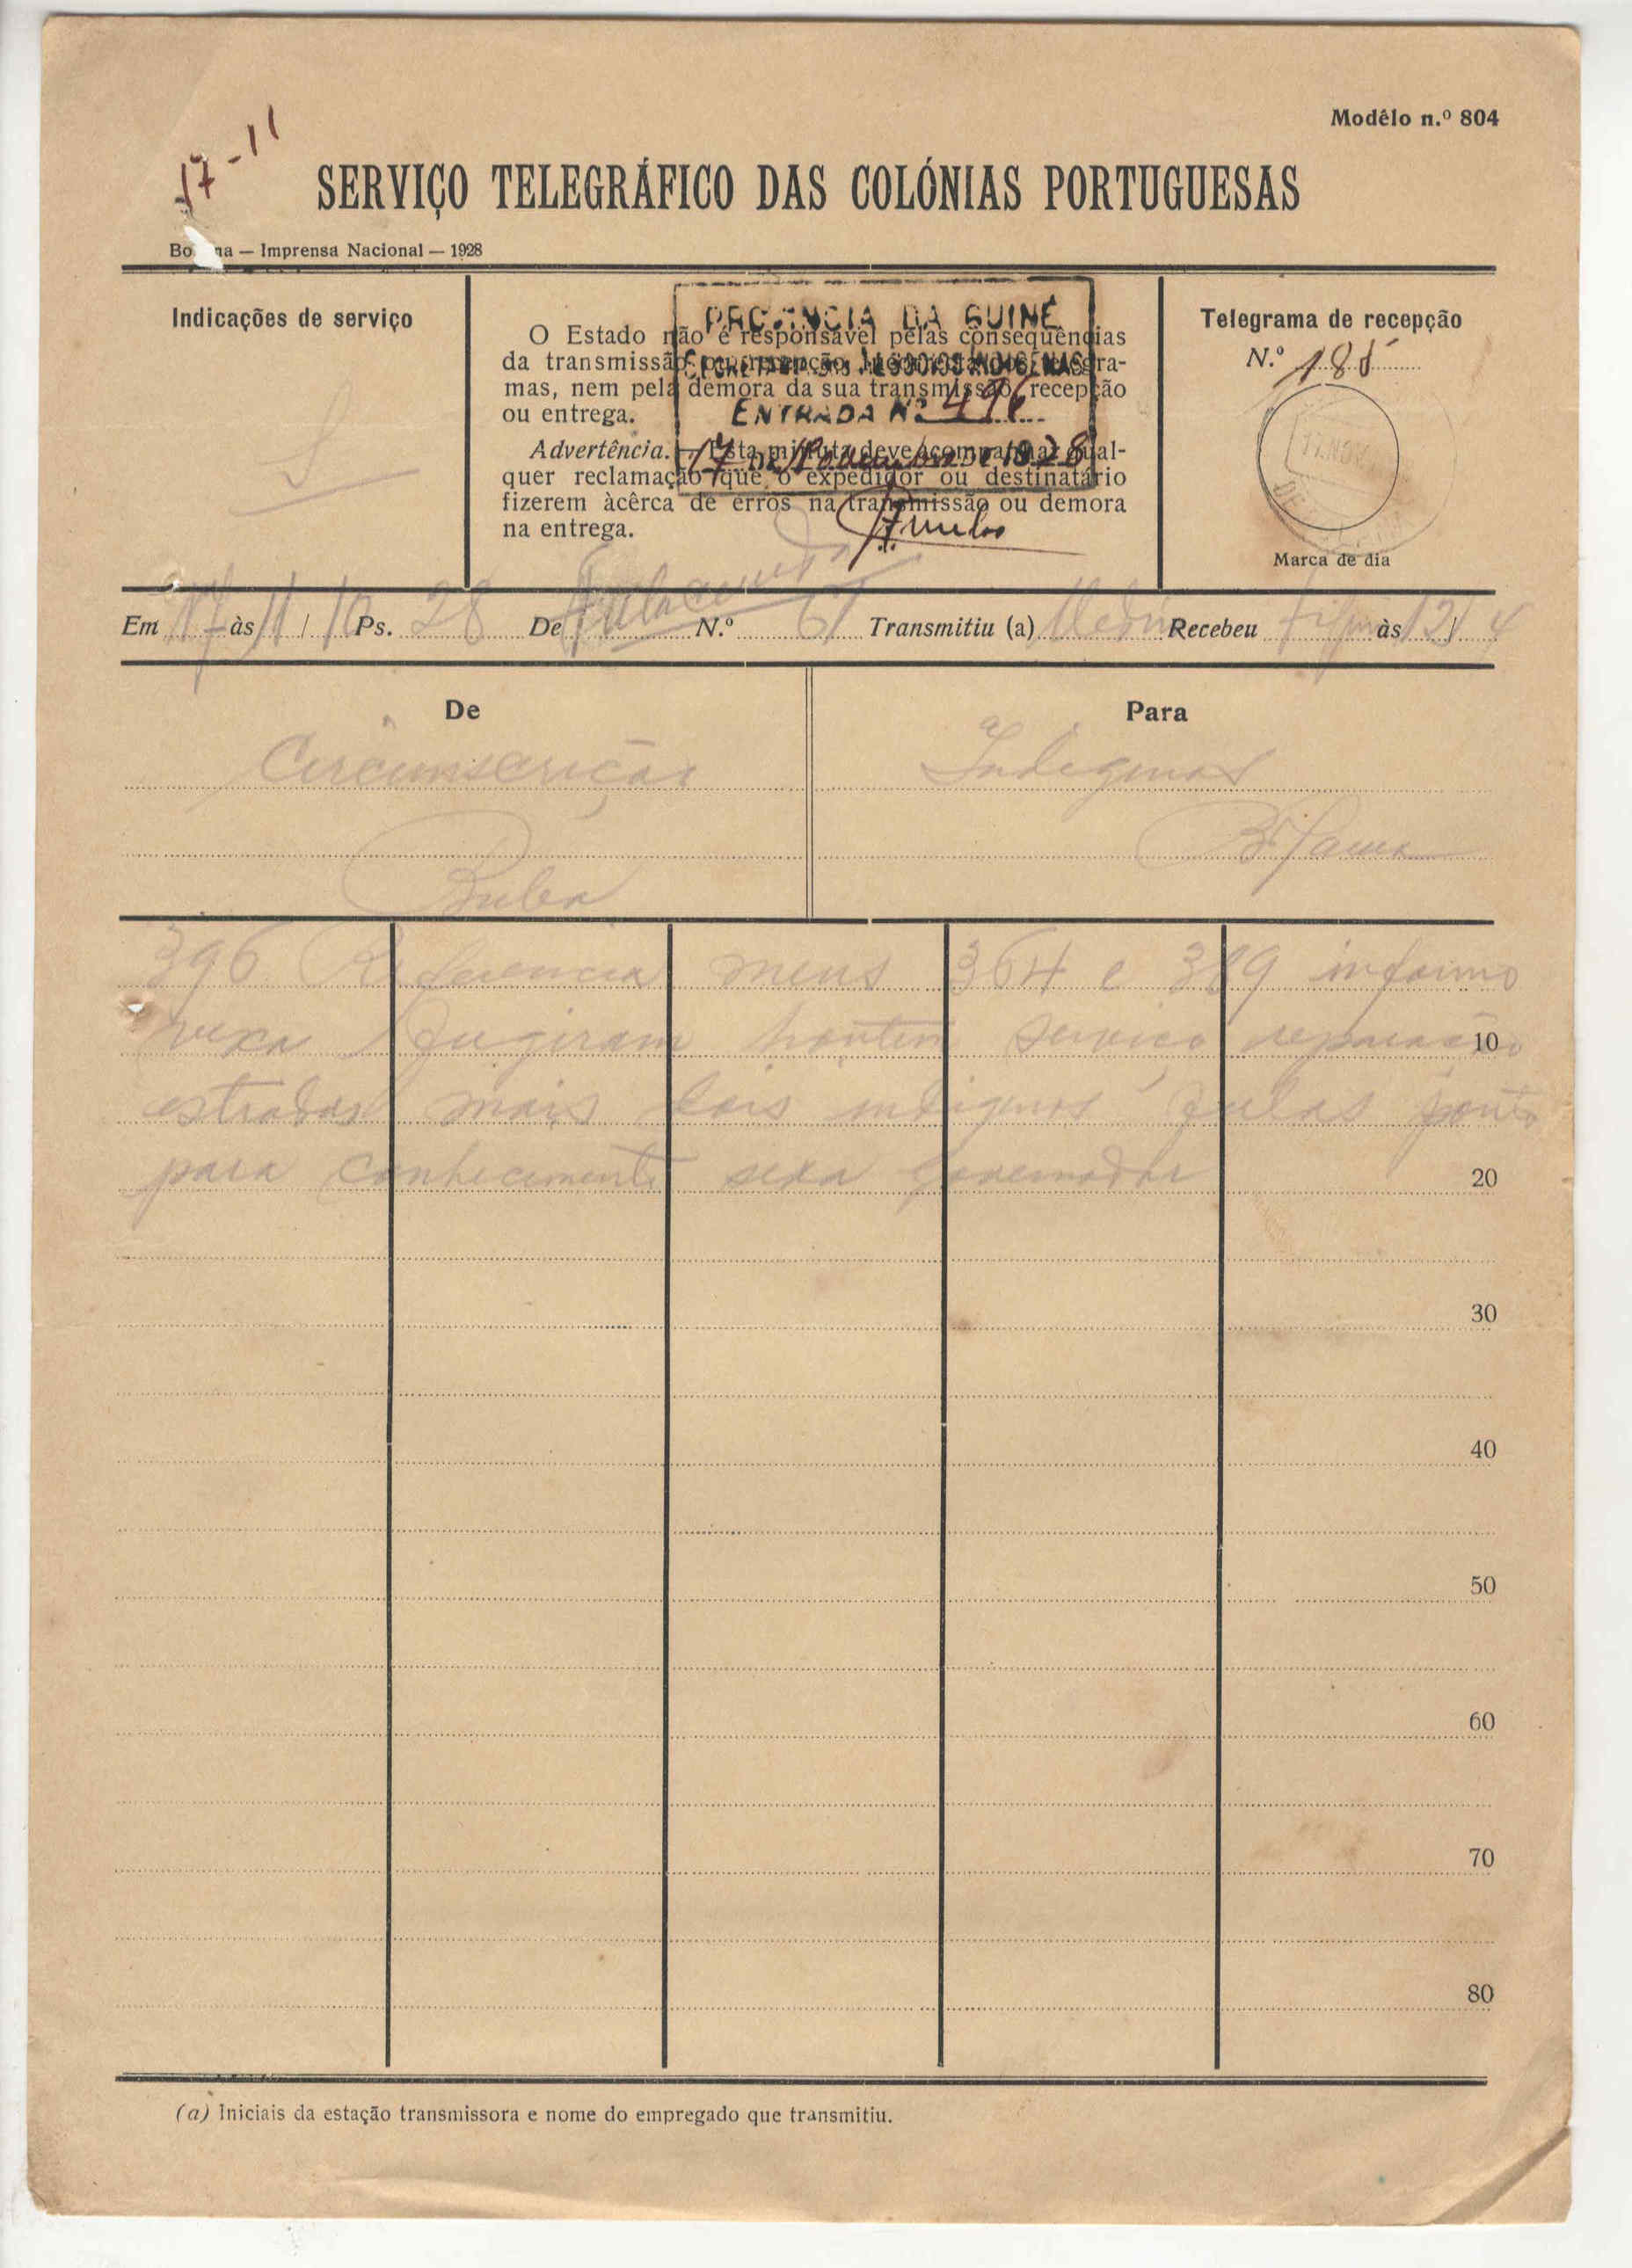 Modêlo n.º 804
17-11
SERVIÇO TELEGRÁFICO DAS COLÓNIAS PORTUGUESAS
— Imprensa Nacional — 1928
Indicações de serviço
S
O Estado não é responsável pelas consequências
da transmissão
mas, nem pela demora da sua transmissão, recepção
ou entrega.
Advertência. — Esta minuta deve acompanhar qual-
quer reclamação que o expedidor ou destinatário
fizerem àcêrca de erros na transmissão ou demora
na entrega.
PROVINCIA DA GUINÉ
NEGOCIOS INDIGENAS
ENTRADA Nº 496
17 de Novembro de 1928
Telegrama de recepção
N.º 185
17.NOV
Marca de dia
Em 17 às 11 / 10 Ps. 28 De Fulacunda N.º 61 Transmitiu (a) Recebeu às 12 / 4
De
Para
Circunscrição
Indigenas
Buba
Bolama
396 Referencia meus 364 e 389 informo
vexa fugiram hontem serviço reparação
10
estradas mais dois indigenas fulas ponto
para conhecimento sexa governador
20
30
40
50
60
70
80
(a) Iniciais da estação transmissora e nome do empregado que transmitiu.